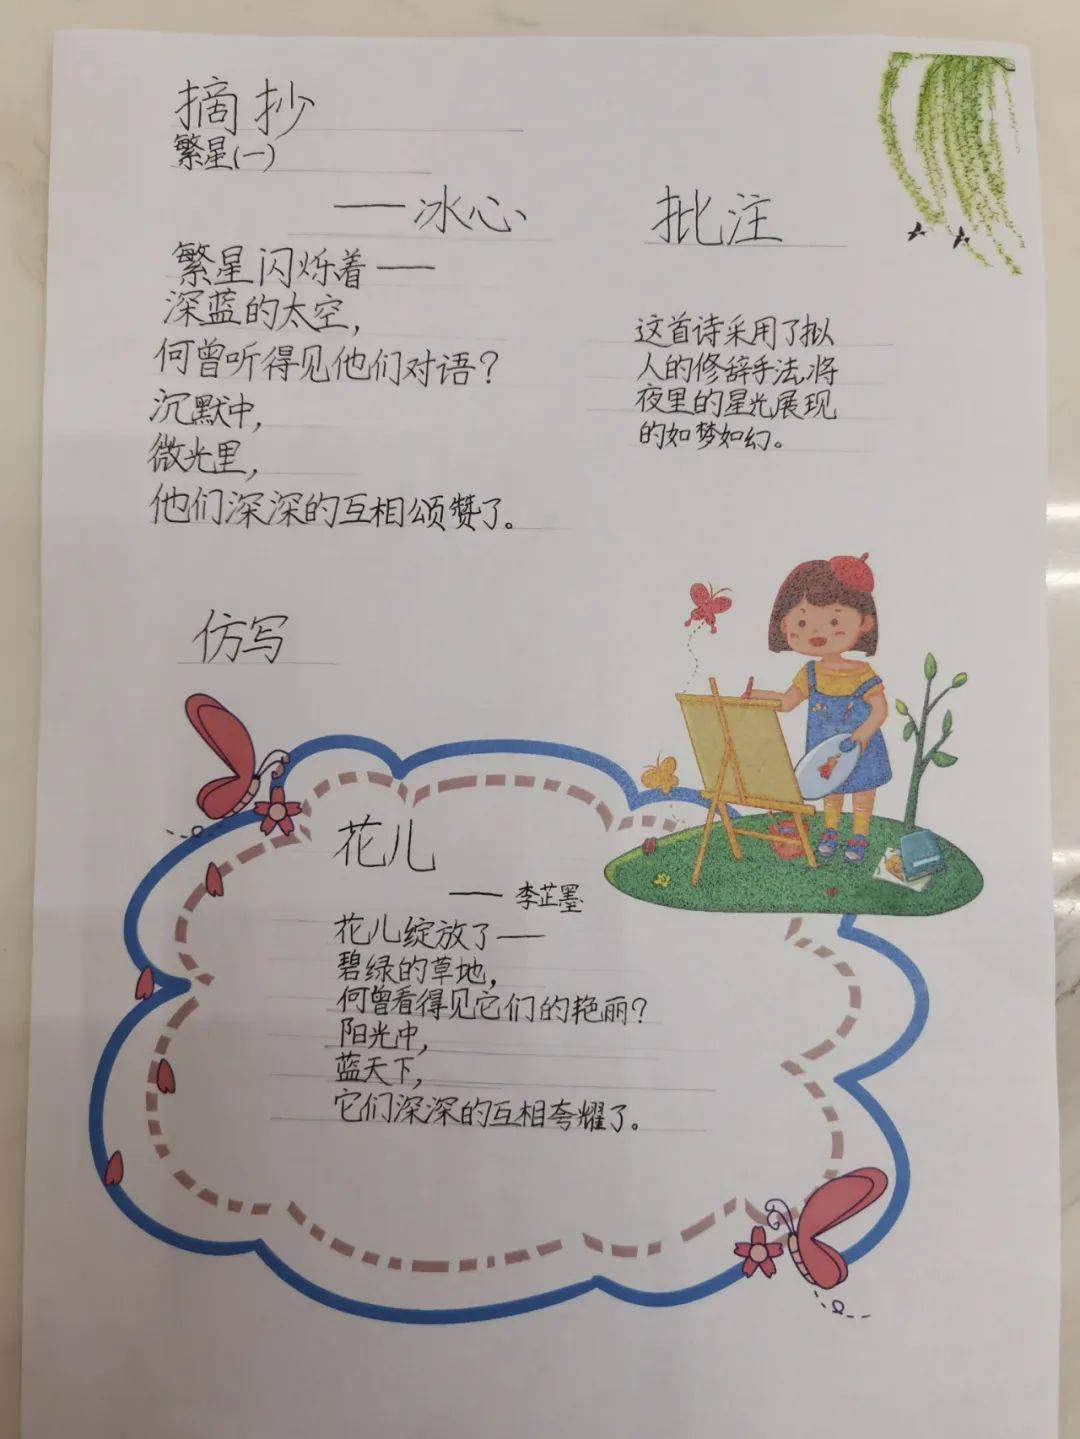 摘抄
繁星(一)
——冰心
繁星闪烁着——
深蓝的太空，
何曾听得见他们对语？
沉默中，
微光里，
他们深深的互相颂赞了。
批注
这首诗采用了拟
人的修辞手法，将
夜里的星光展现
的如梦如幻。
仿写
花儿
——李芷墨
花儿绽放了——
碧绿的草地，
何曾看得见它们的艳丽？
阳光中，
蓝天下，
它们深深的互相夸耀了。